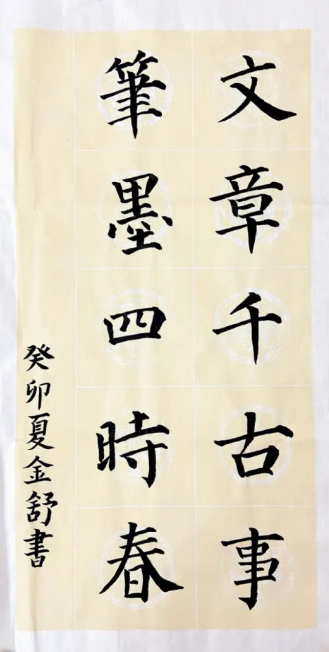 文章千古事
筆墨四時春
癸卯夏金舒書